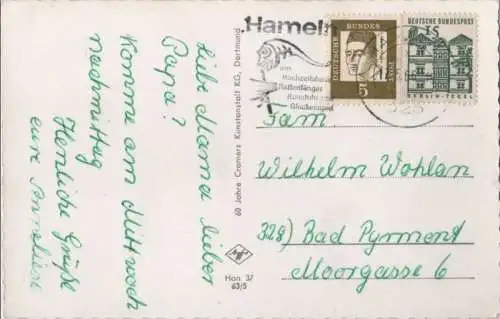 Liebe Mama lieber
Papa?
Komme am Mittwoch
nachmittag
Herzliche Grüße
eure Anneliese
60 Jahre Cramers Kunstanstalt KG, Dortmund
Hameln
am
Hochzeitshaus
Rattenfänger
Kunstuhr
Glockenspiel
DEUTSCHE BUNDESPOST
5
DEUTSCHE BUNDESPOST
15
BERLIN-TEGEL
Fam
Wilhelm Wohlan
328) Bad Pyrmont
Moorgasse 6
Han 37
63/5